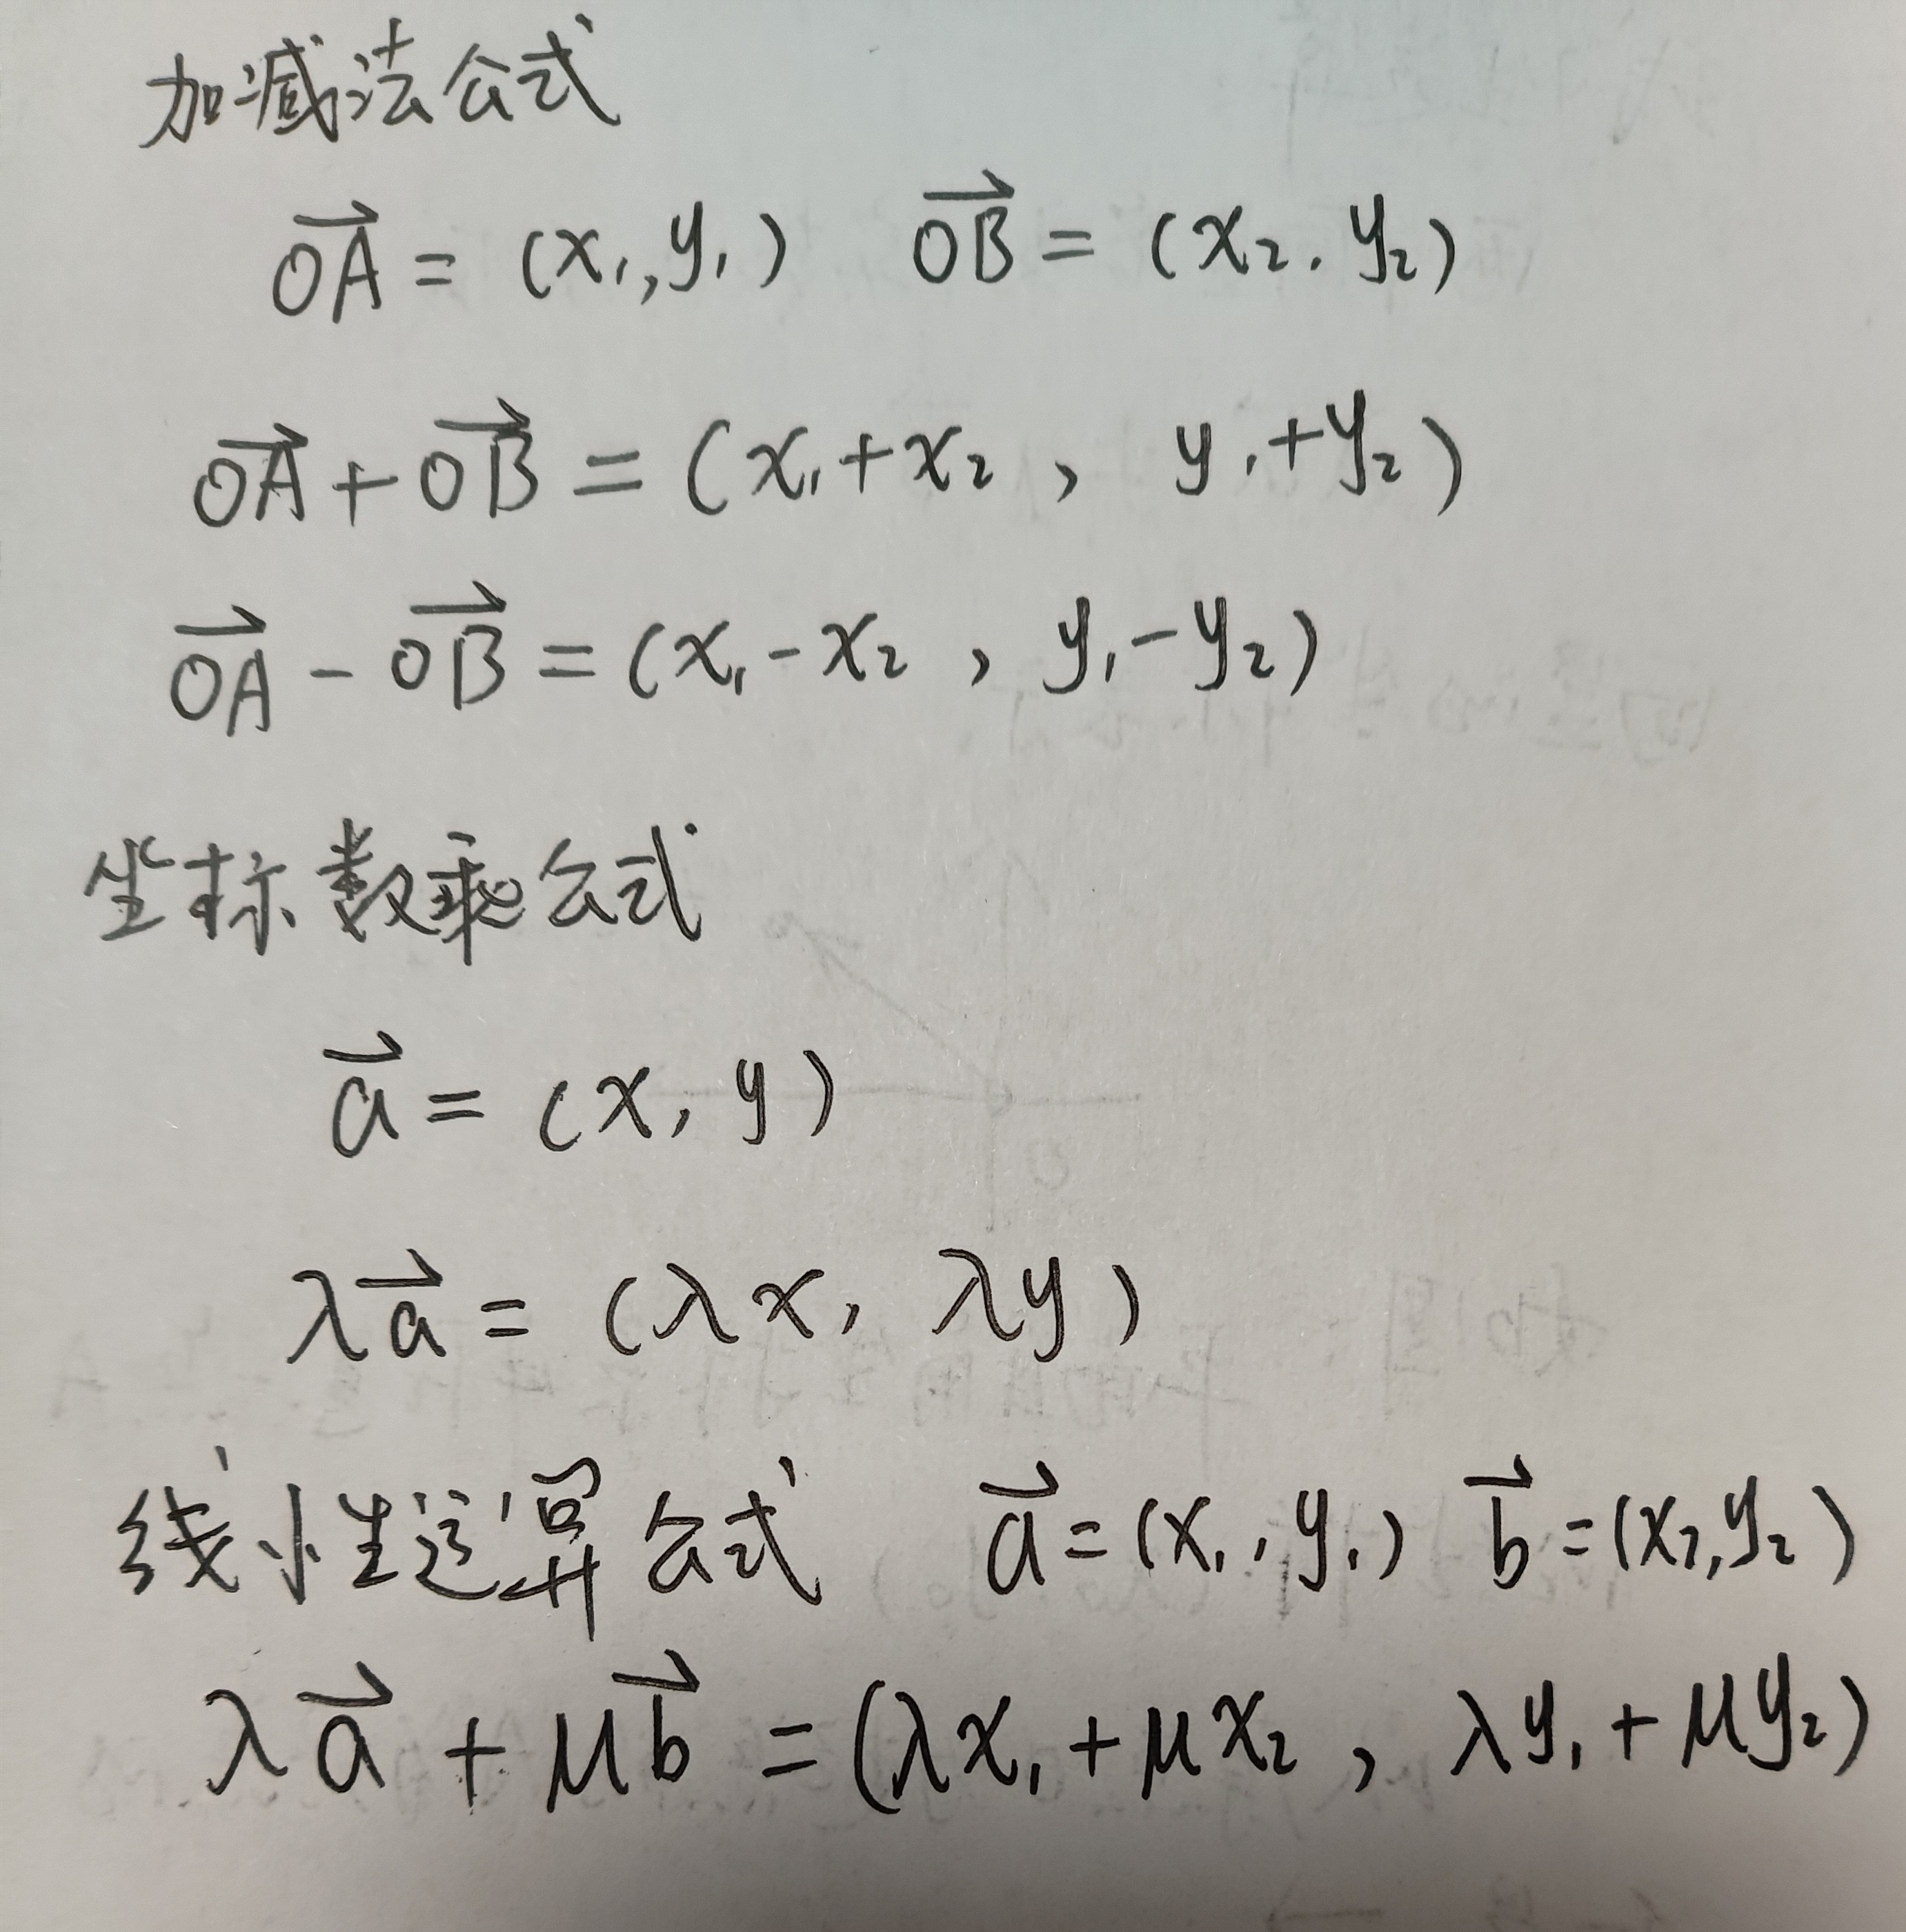 加减法公式
$\overrightarrow{OA} = (x_1, y_1)$  $\overrightarrow{OB} = (x_2, y_2)$
$\overrightarrow{OA} + \overrightarrow{OB} = (x_1 + x_2, y_1 + y_2)$
$\overrightarrow{OA} - \overrightarrow{OB} = (x_1 - x_2, y_1 - y_2)$
坐标数乘公式
$\vec{a} = (x, y)$
$\lambda\vec{a} = (\lambda x, \lambda y)$
线性运算公式  $\vec{a} = (x_1, y_1)$  $\vec{b} = (x_2, y_2)$
$\lambda\vec{a} + \mu\vec{b} = (\lambda x_1 + \mu x_2, \lambda y_1 + \mu y_2)$